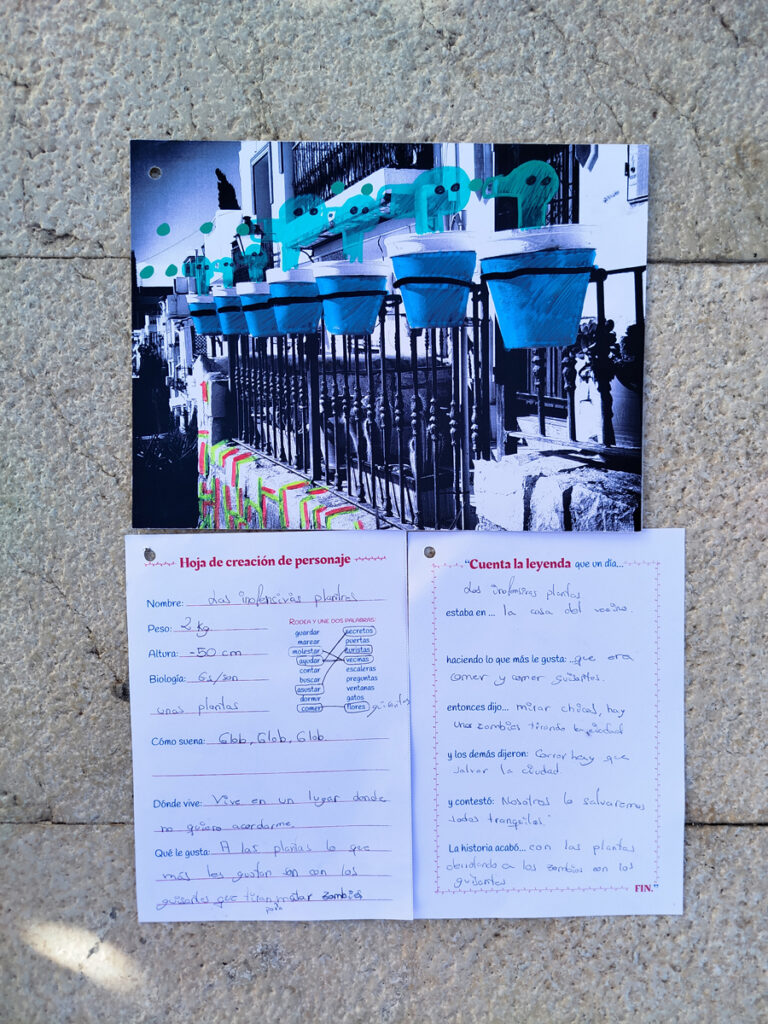 Hoja de creación de personaje
Nombre: Las inofensivas plantas
Peso: 2 kg
Altura: -50 cm
Biología: Es/son
unas plantas
RODEA Y UNE DOS PALABRAS
guardar secretos
marear puertas
molestar turistas
ayudar vecinas
contar escaleras
buscar preguntas
asustar ventanas
dormir gatos
comer flores guisantes
Cómo suena: Glob, Glob, Glob
Dónde vive: Vive en un lugar donde
no quiero acordarme.
Qué le gusta: A las plantas lo que
más les gustar son con los
guisantes que tiran matar zombis
para
"Cuenta la leyenda que un día...
Las inofensivas plantas
estaba en... la casa del vecino.
haciendo lo que más le gusta: ..que era
comer y comer guisantes.
entonces dijo... mirar chicas, hay
unos zombies tirando
y los demás dijeron: Correr hay que
salvar la ciudad.
y contestó: Nosotros lo salvaremos
todos tranquilos.
La historia acabó... con las plantas
derrotando a los zombies con los
guisantes
FIN."